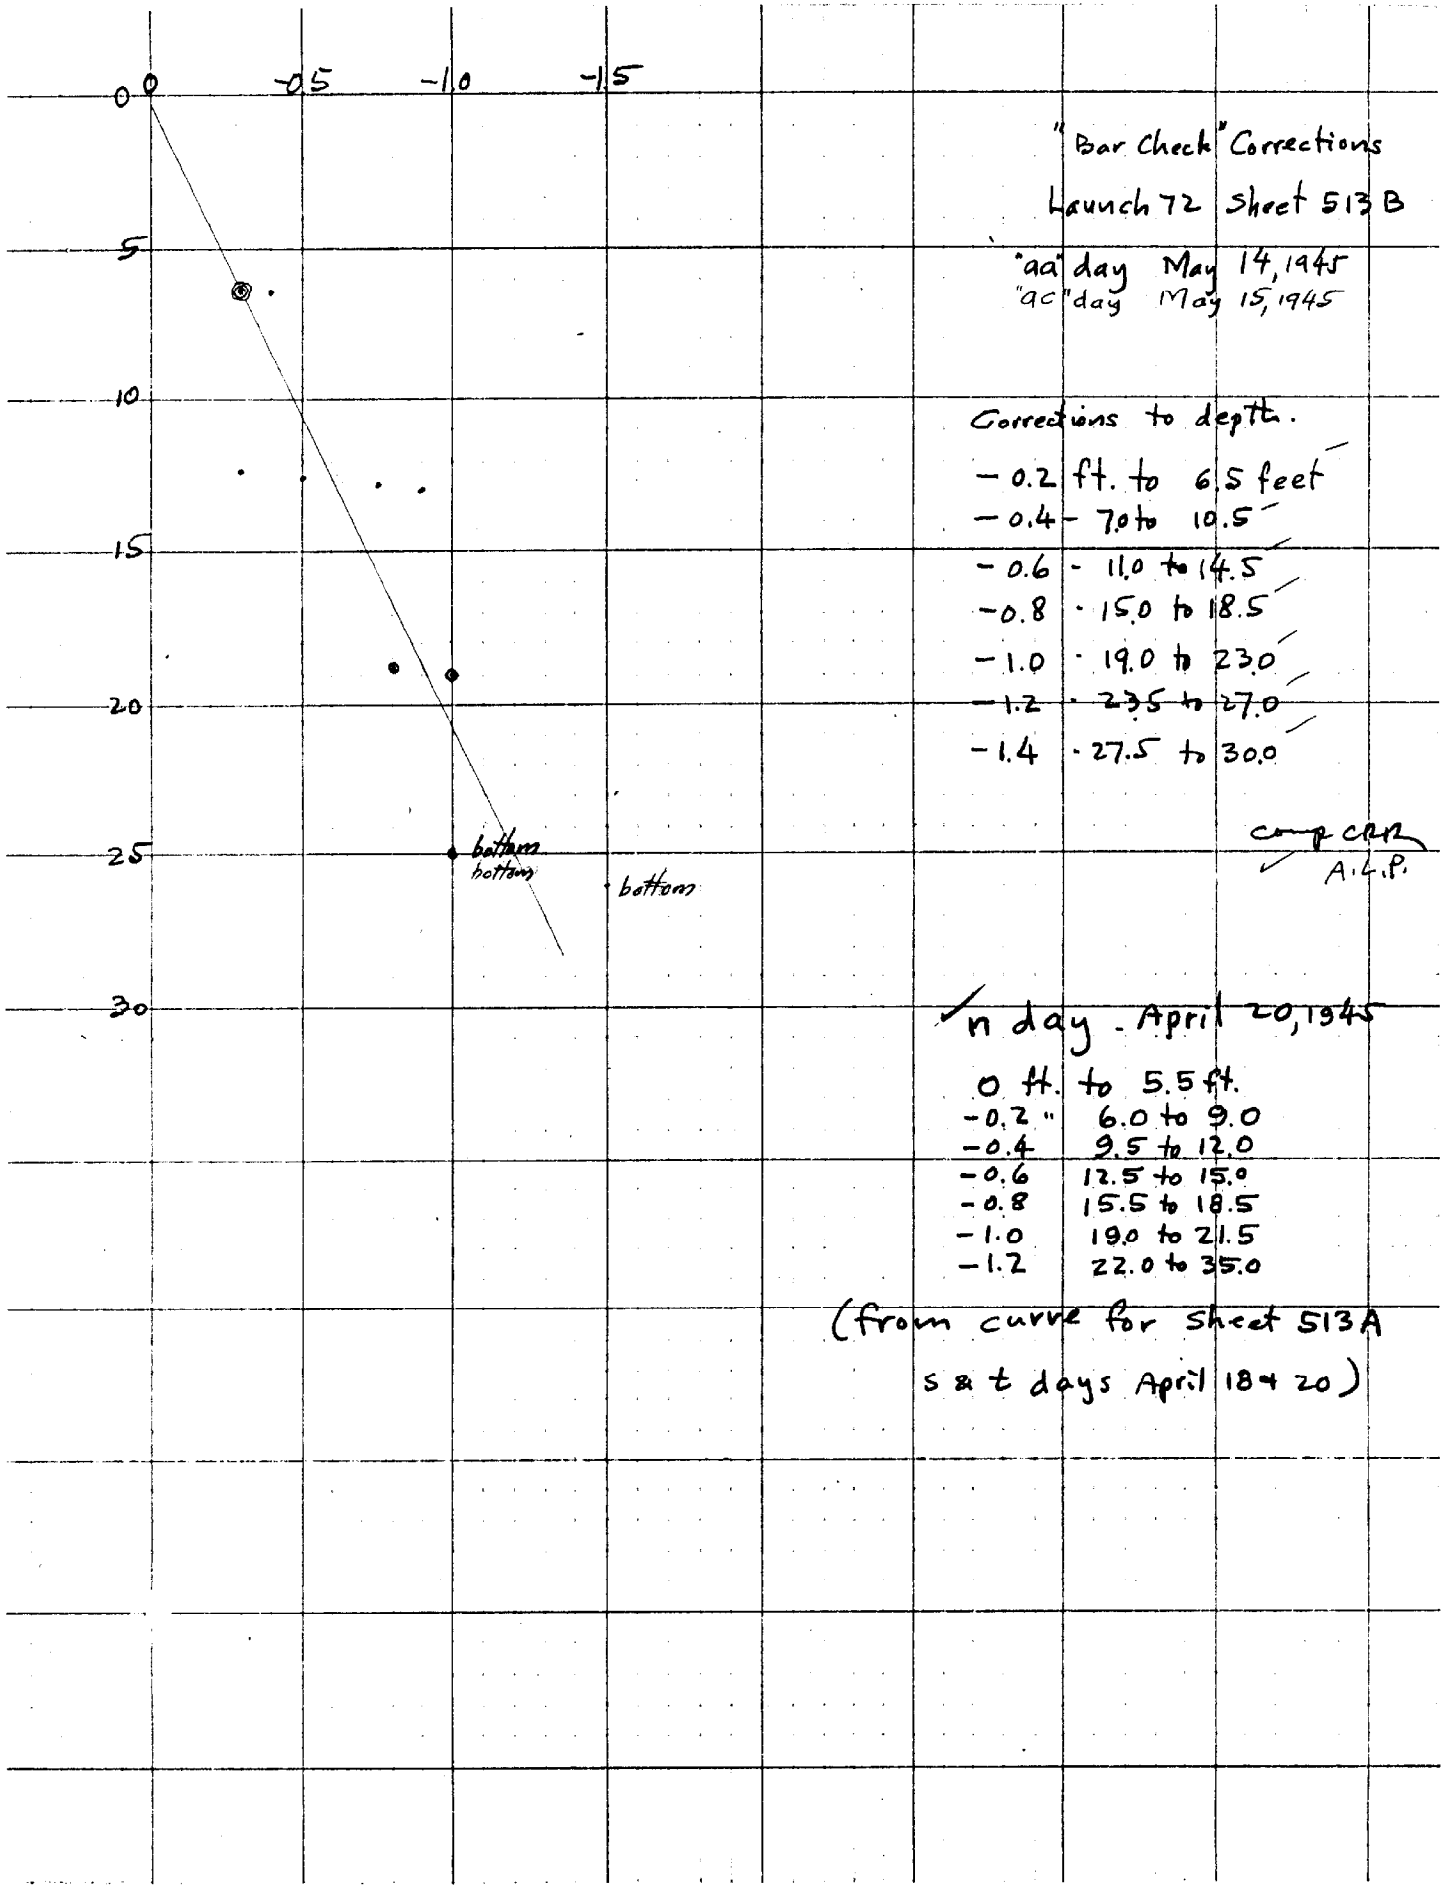 0 -0.5 -1.0 -1.5
0
5
10
15
20
25
30
bottom
bottom
bottom
"Bar Check" Corrections
Launch 72 Sheet 513B
"aa" day May 14, 1945
"ac" day May 15, 1945
Corrections to depth.
- 0.2 ft. to 6.5 feet
- 0.4 - 7.0 to 10.5
- 0.6 - 11.0 to 14.5
- 0.8 - 15.0 to 18.5
- 1.0 - 19.0 to 23.0
- 1.2 - 23.5 to 27.0
- 1.4 - 27.5 to 30.0
comp CRR
✓ A.L.P.
✓ n day - April 20, 1945
0 ft. to 5.5 ft.
-0.2 " 6.0 to 9.0
-0.4 9.5 to 12.0
-0.6 12.5 to 15.0
-0.8 15.5 to 18.5
-1.0 19.0 to 21.5
-1.2 22.0 to 35.0
(from curve for Sheet 513A
s & t days April 18 & 20)